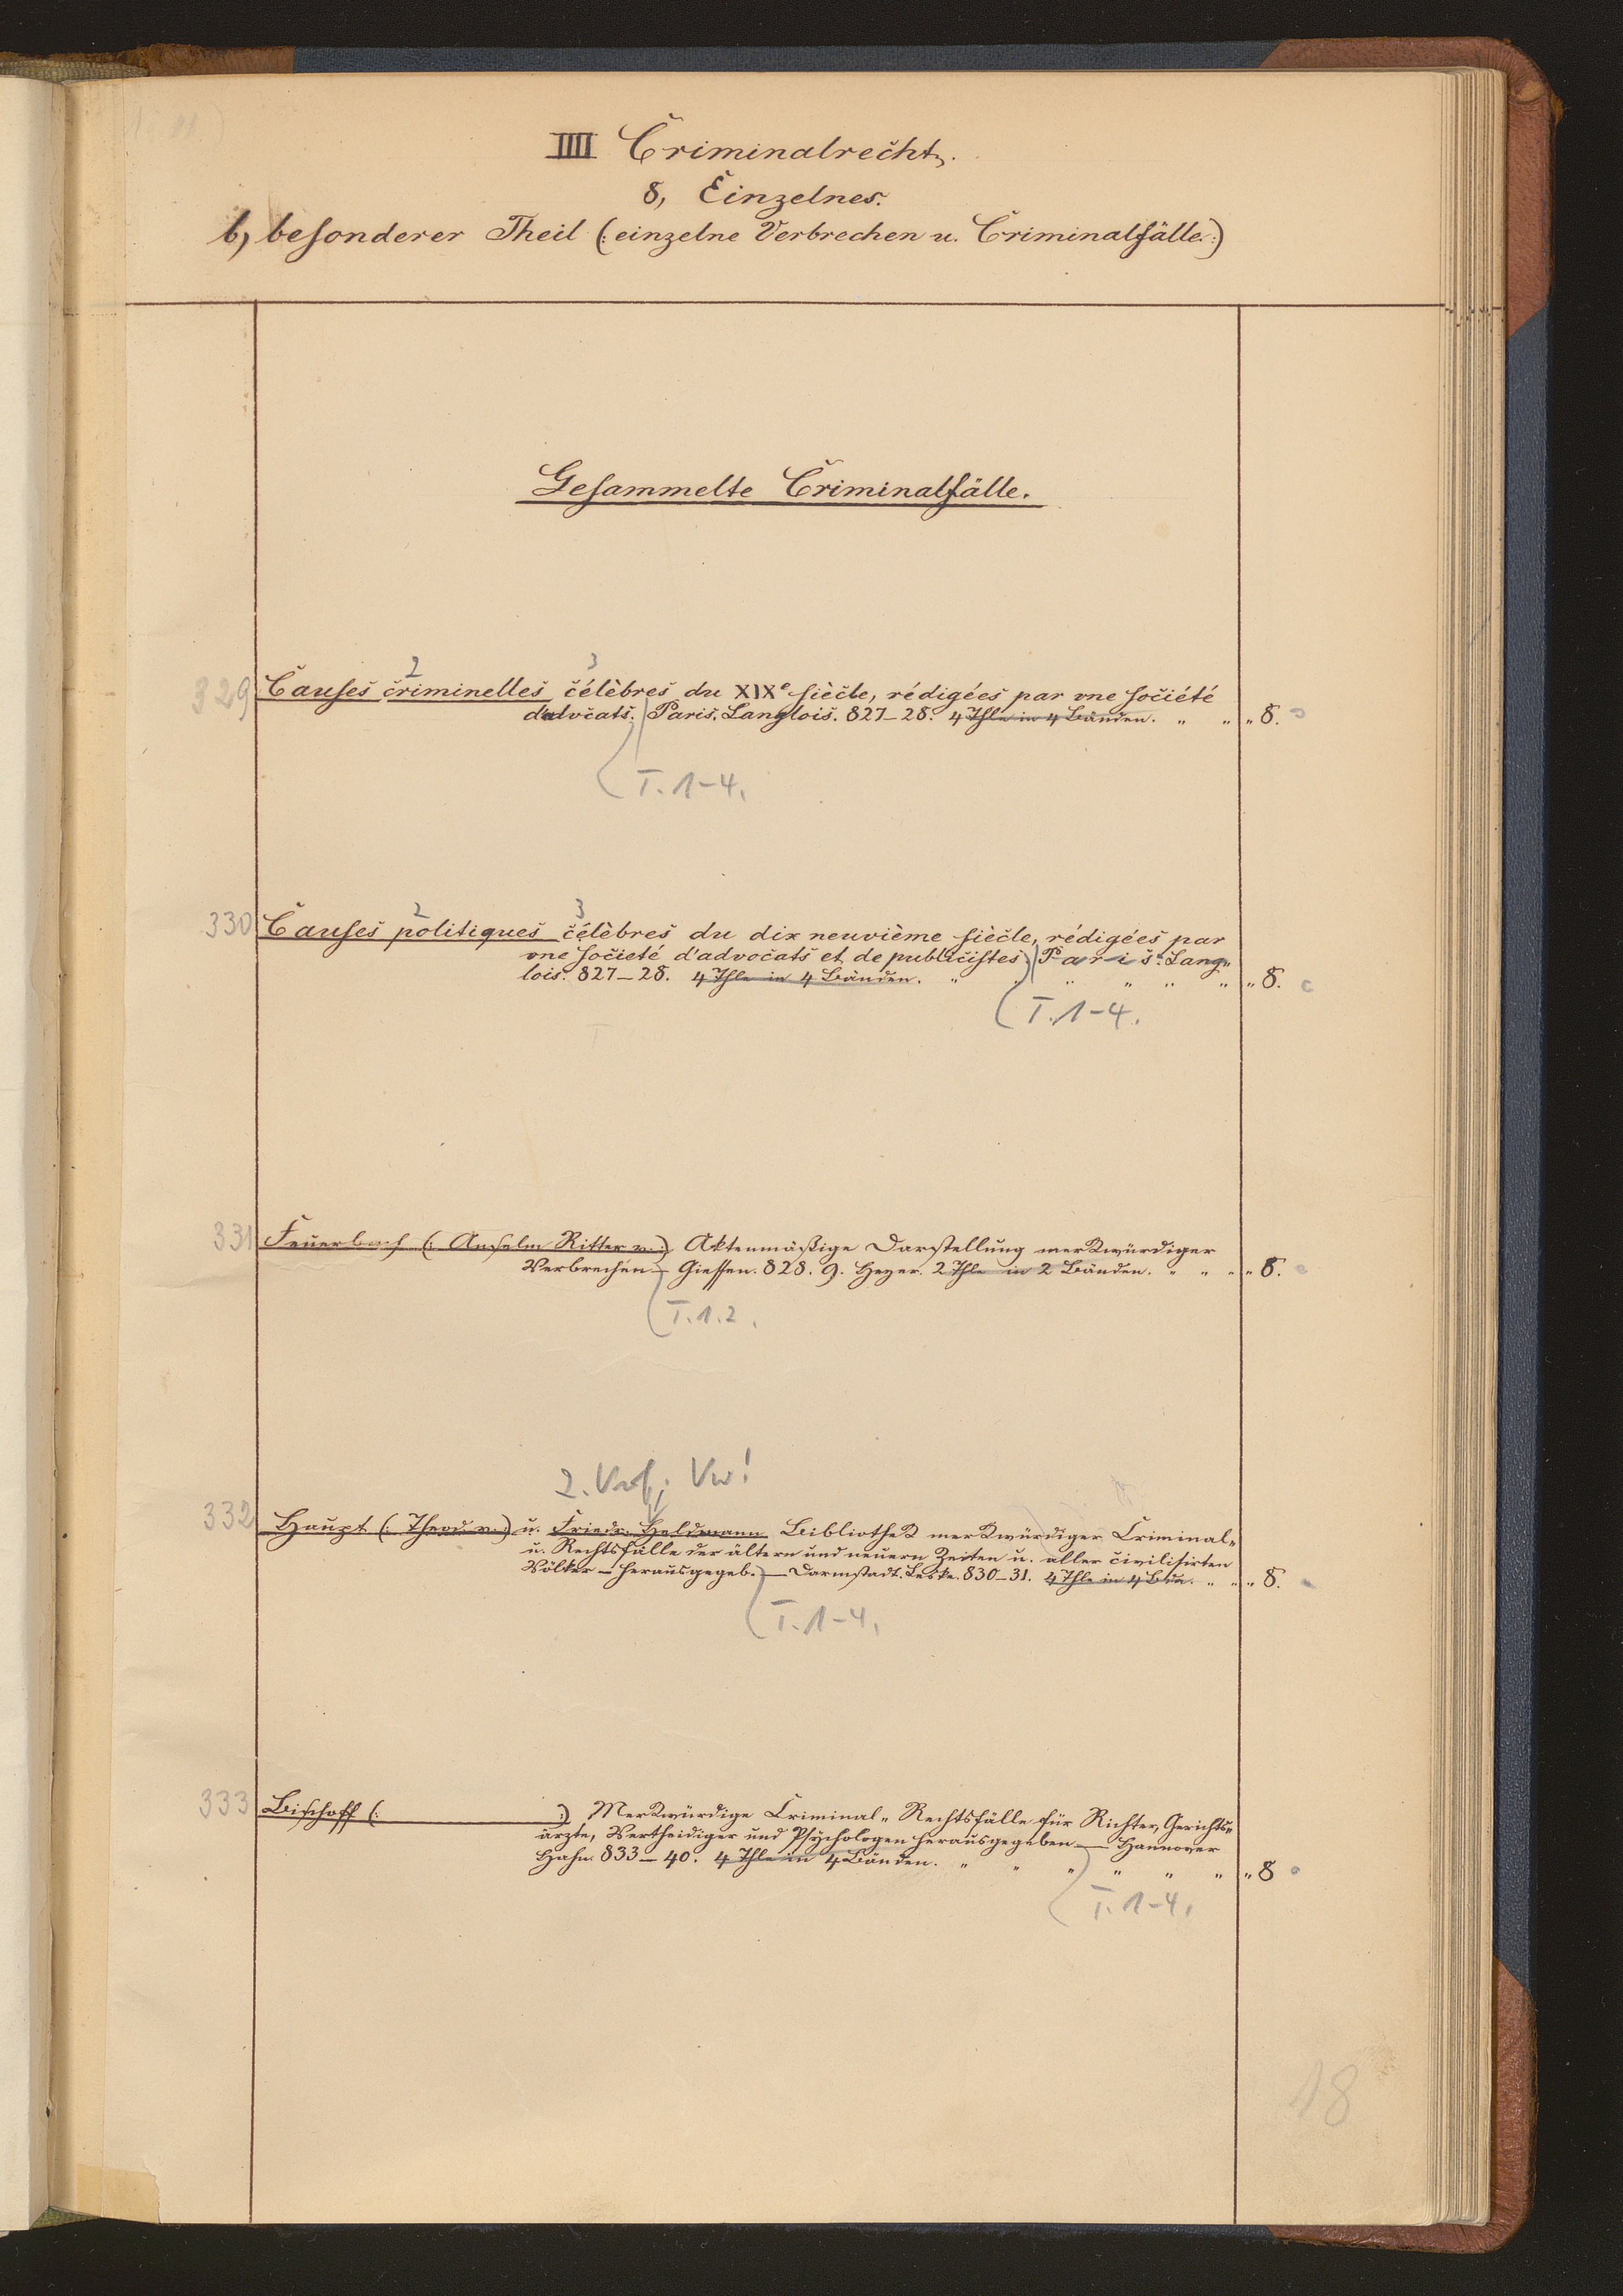 IIII Criminalrecht.
8, Einzelnes.
b, besonderer Theil (: einzelne Verbrechen u. Criminalfälle :)
Gesammelte Criminalfälle.
2 3
329 Causes criminelles célèbres du XIXe siècle, rédigées par une société
d'advocats. Paris. Langlois. 827–28. 4 Thle in 4 Bänden. " " " 8.
T. 1–4.
2 3
330 Causes politiques célèbres du dix neuvième siècle, rédigées par
une societé d'advocats et de publicistes. Paris. Lang-
lois. 827–28. 4 Thle in 4 Bänden. " " " " " " " 8.
T. 1–4.
331 Feuerbach (: Anselm Ritter v. :) Aktenmäßige Darstellung merkwürdiger
Verbrechen – Giessen. 828. 9. Heyer. 2 Thle in 2 Bänden. " " " " 8.
T. 1. 2.
2. Verf; Vw!
332 Haupt (: Theod. v. :) u. Friedr. Heldmann Bibliothek merkwürdiger Criminal-
u. Rechtsfälle der ältern und neuern Zeiten u. aller civilisirten
Völker – herausgegeb. – Darmstadt. Leske. 830–31. 4 Thle in 4 Bdn. " " " 8.
T. 1–4.
333 Bischoff (: :) Merkwürdige Criminal- Rechtsfälle für Richter, Gerichts-
ärzte, Vertheidiger und Psychologen herausgegeben – Hannover
Hahn. 833–40. 4 Thle in 4 Bänden. " " " " " " " 8
T. 1–4.
18